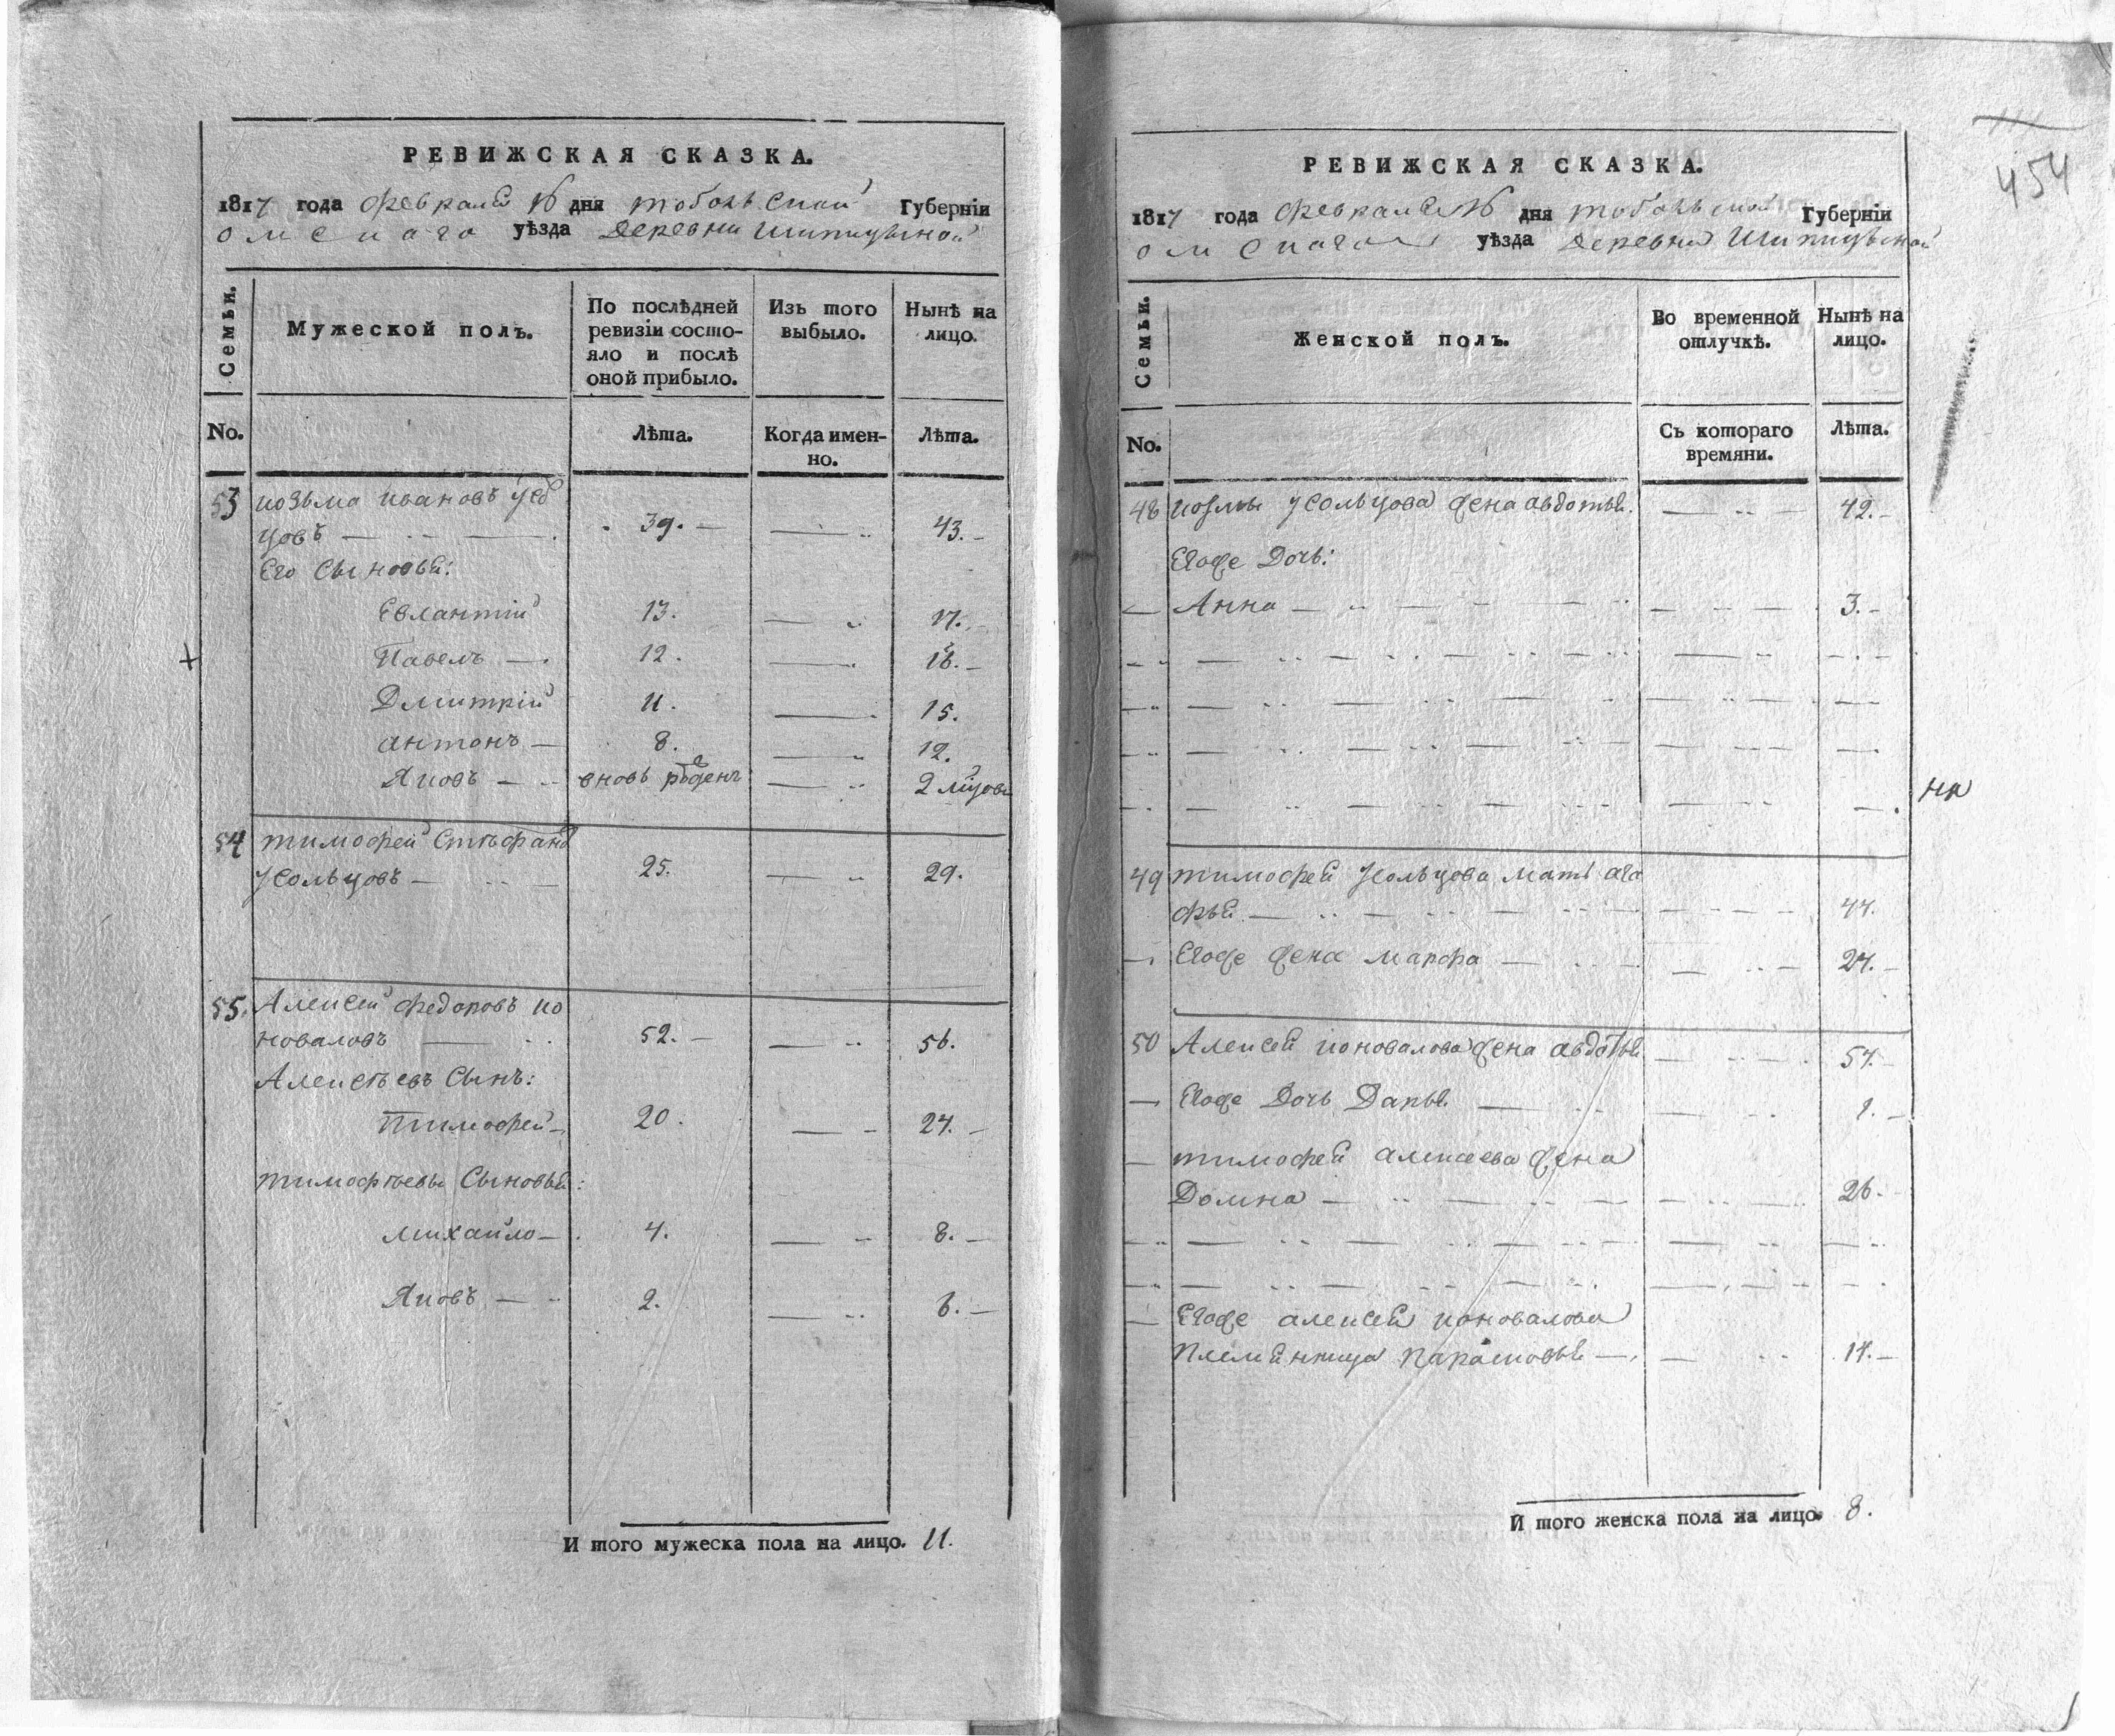 РЕВИЖСКАЯ СКАЗКА.
1817 года февраля 16 дня тобольской Губерніи
омскаго уѣзда деревни шипицыной
Семьи.
Мужеской полъ.
По послѣдней ревизіи состояло и послѣ оной прибыло.
Изъ того выбыло.
Нынѣ на лицо.
No.
Лѣта.
Когда именно.
Лѣта.
53 козьма ивановъ
цовъ 39. 43.
Его Сыновья:
Евлантій 13. 17.
Павелъ 12. 16.
Дмитрій 11. 15.
антонъ 8. 12.
Яковъ вновь рожденъ 2
54 тимофей Стефановъ
усольцовъ 25. 29.
55. Алексей федоровъ ко
новаловъ 52. 56.
Алексѣевъ Сынъ:
тимофей 20. 24.
тимофѣевы Сыновья:
михайло 4. 8.
Яковъ 2. 6.
И того мужеска пола на лицо. 11.
454
РЕВИЖСКАЯ СКАЗКА.
1817 года февраля 16 дня тобольской Губерніи
омскаго уѣзда деревни Шипицыной
Семьи.
Женской полъ.
Во временной отлучкѣ.
Нынѣ на лицо.
No.
Съ котораго времяни.
Лѣта.
48 козмы усольцова жена авдотья. 42.
Егоже Дочь:
Анна 3.
49 тимофея усольцова мать ага
фья 44.
Егоже жена марфа 24.
50 Алексея коновалова жена авдотья 54.
Егоже Дочь Дарья 1.
тимофея алексеева жена
Домна 26.
Егоже алексея коновалова
племянница парасковья 14.
И того женска пола на лицо. 8.